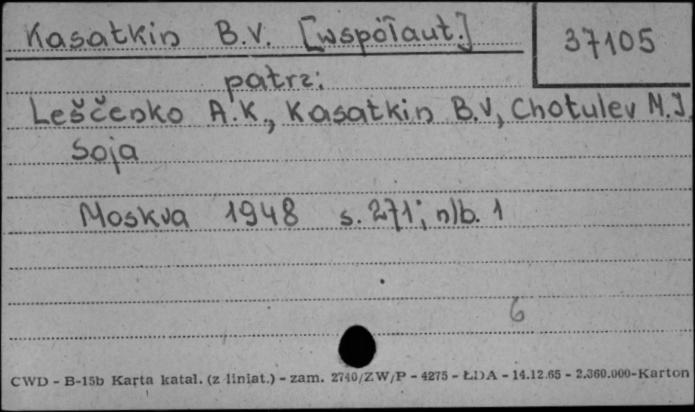 Kasatkin B.V. [współaut.]
37105
patrz:
Leščenko A.K., Kasatkin B.V., Chotulev M.J.
Soja
Moskva 1948 s. 271; nlb. 1
6
CWD - B-15b Karta katal. (z liniat.) - zam. 2740/ZW/P - 4275 - ŁDA - 14.12.65 - 2.360.000-Karton